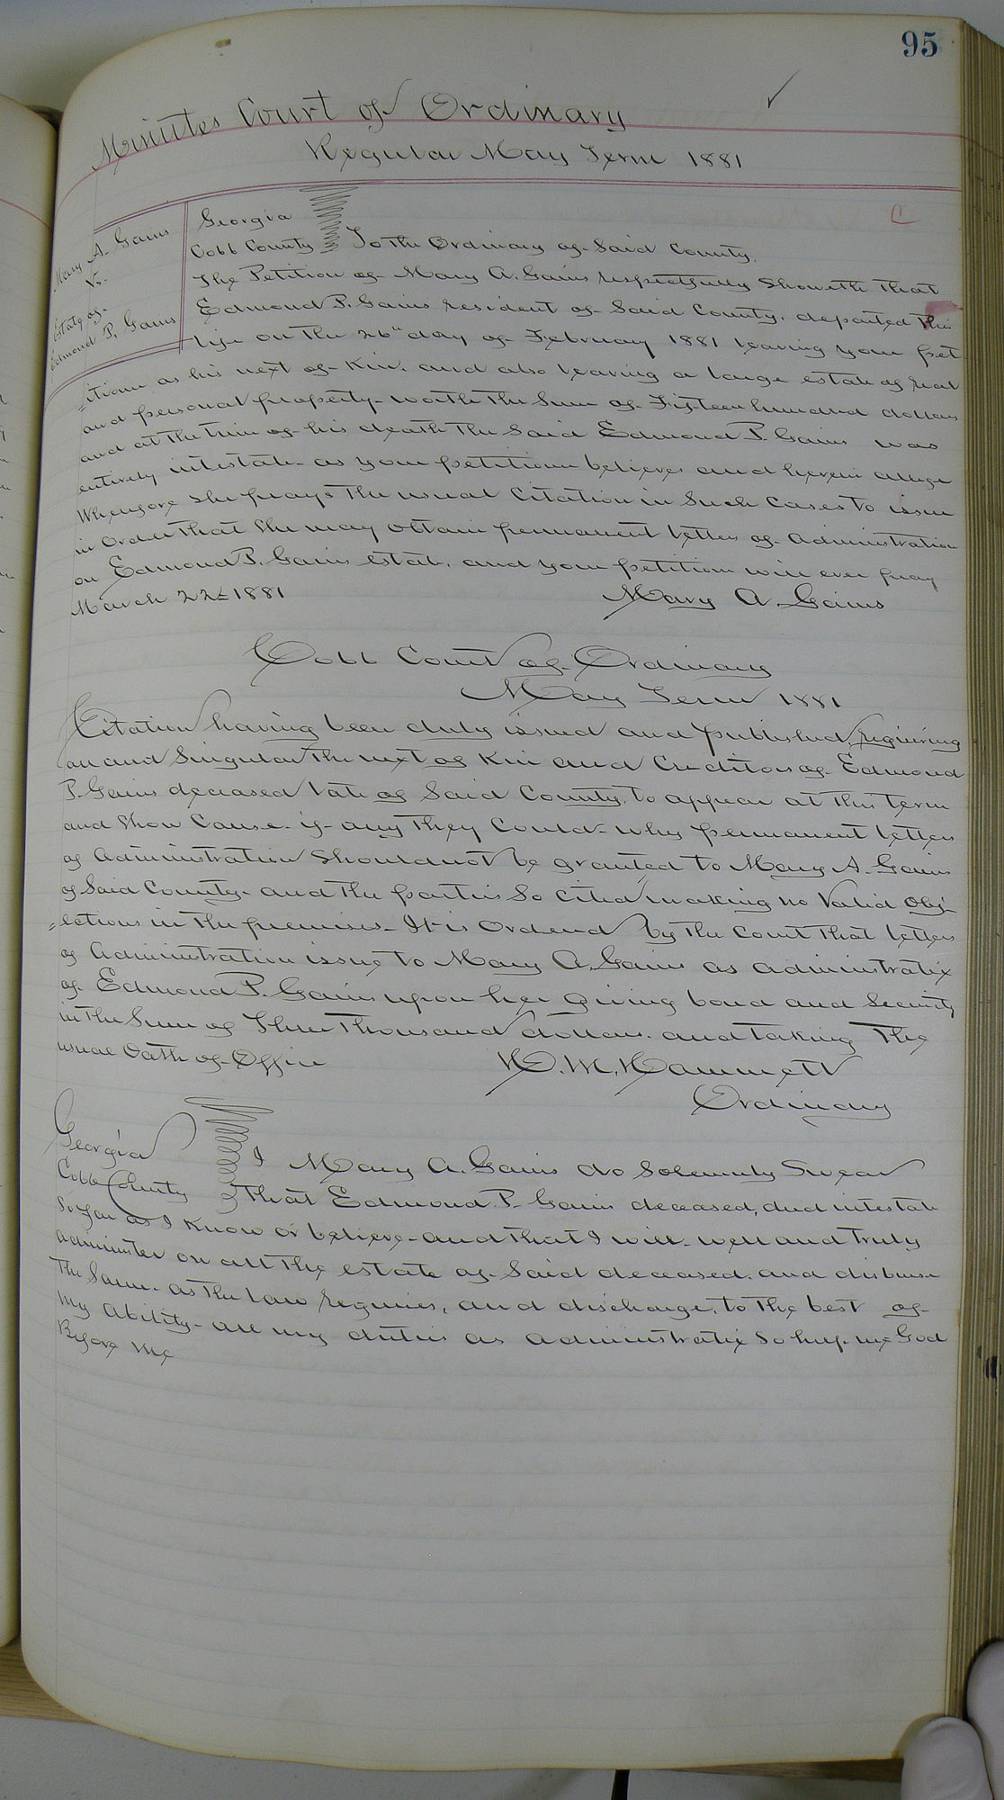 95
Minutes Court of Ordinary
Regular May Term 1881
Mary A. Gains
Vs.
Estate of
Edmond P. Gains
Georgia
Cobb County To the Ordinary of Said County.
The Petition of Mary A. Gains respectfully Showeth that
Edmond P. Gains resident of Said County. departed this
life on the 26" day of February 1881 leaving your pet
=itioner as his next of Kin. and also leaving a large estate of real
and personal property worth the Sum of Fifteen hundred dollars
and at the time of his death the Said Edmond P. Gains was
entirely intestate as your petitioner believes and herein allege
Wherefore She prays the usual Citation in Such Cases to issue
in Order that She may obtain permanent letters of administration
on Edmond P. Gains estate, and your petitioner will ever pray
March 22d 1881 Mary A. Gains
Cobb Court of Ordinary
May Term 1881
Citation having been duly issued and published requiring
all and Singular the next of Kin and Creditors of Edmond
P. Gains deceased late of Said County, to appear at this term
and Show Cause if any they Could why permanent letters
of administration Should not be granted to Mary A. Gains
of Said County and the parties So Cited making no Valid obj-
=ections in the premises. It is Ordered by the Court that letters
of Administration issue to Mary A. Gains as administratrix
of Edmond P. Gains upon her giving bond and Security
in the Sum of Three Thousand dollars. and taking The
usual Oath of Office H. M. Hammett
Ordinary
Georgia I Mary A. Gains do Solemnly Swear
Cobb County That Edmond P. Gains deceased, died intestate
So far as I Know or believe and that I will well and truly
administer on all the estate of Said deceased. and disburse
the Same. as the law requires, and discharge, to the best of
my ability all my duties as administratrix So help me God
Before me